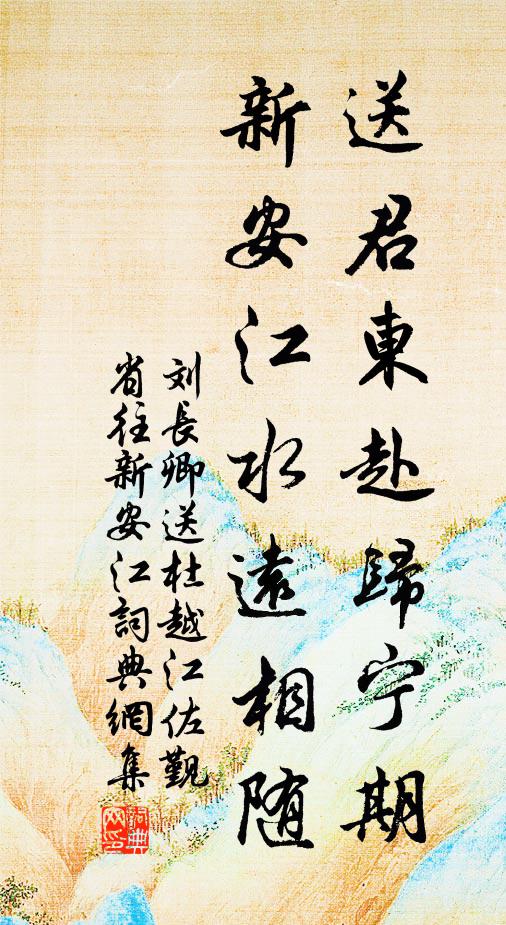 送君東赴歸宁期
新安江水遠相随
刘長卿送杜越江佐覲
省往新安江詞典網集
詞典
网印